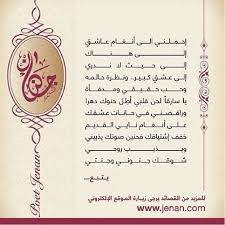 إحملني الى أنغام عاشق
إلى هناك
إلى حيث لا ندري
إلى عشق كبير.. ونظرة حالمه
وحب حقيقي ومدفأة
يا سارقاً لحن قلبي أطل حنوك دهرا
وراقصني في حانات عشقك
على أنغام نايي القديم
خفف إشتياقك فحنين صوتك يذيبني
ويذيب روحي
شوقك جنوني وجنتي
يتبع...
جنان
Poet Jenan
للمزيد من القصائد يرجى زيارة الموقع الإلكتروني
www.jenan.com